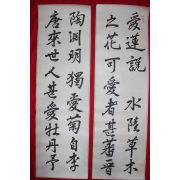 愛蓮說　水陸草木
之花可愛者甚蕃晉
陶淵明獨愛菊自李
唐來世人甚愛牡丹予